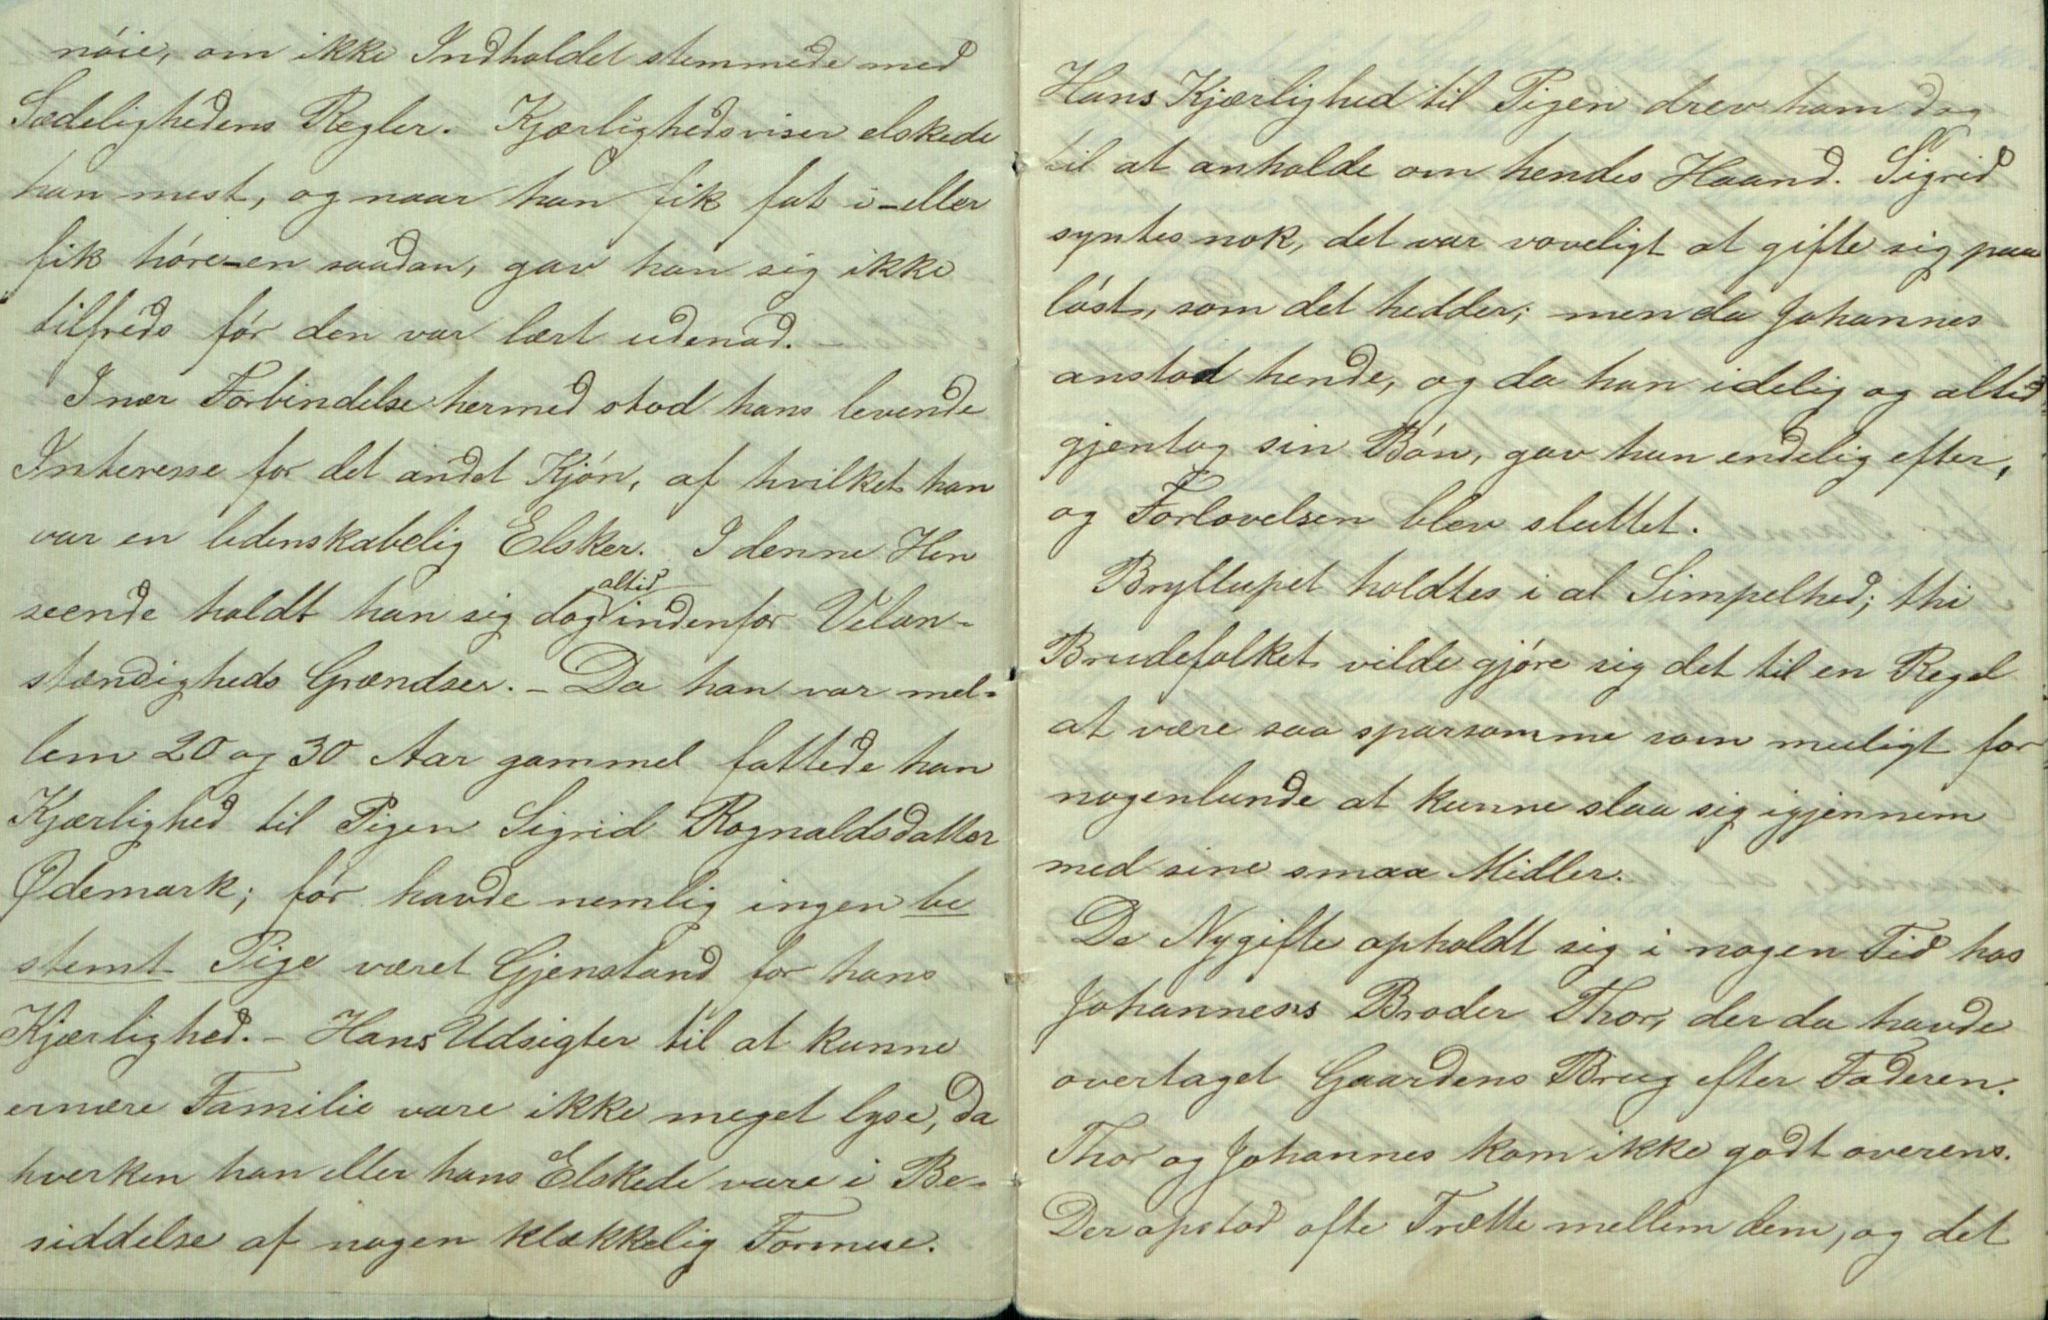 nóie, om ikke Indholdet stemmede med
Sædelighedens Regler. Kjærlighedsviser elskede
han mest, og naar han fik fat i – eller
fik høre – en saadan, gav han sig ikke
tilfreds før den var lært udenad. –
I nær Forbindelse hermed stod hans levende
Interesse for det andet Kjón, af hvilket han
var en lidenskabelig Elsker. I denne Hen
seende holdt han sig dog altid indenfor Velan-
stændigheds Grændser. – Da han var mel-
lem 20 og 30 Aar gammel fattede han
Kjærlighed til Pigen Sigrid Rognaldsdatter
Ødemark; før havde nemlig ingen be
stemt Pige været Gjenstand for hans
Kjærlighed. – Hans Udsigter til at kunne
ernære Familie vare ikke meget lyse, da
hverken han eller hans Elskede vare i Be-
siddelse af nogen klækkelig Formue.
Hans Kjærlighed til Pigen drev ham dog
til at anholde om hendes Haand. Sigrid
syntes nok, det var voveligt at gifte sig paa
løst, som det hedder; men da Johannes
anstod hende, og da han idelig og altid
gjentog sin Bón, gav hun endelig efter,
og Forlovelsen blev sluttet.
Bryllupet holdtes i al Simpelhed; thi
Brudefolket vilde gjóre sig det til en Regel
at være saa sparsomme som muligt for
nogenlunde at kunne slaa sig igjennem
med sine smaa Midler.
De Nygifte opholdt sig i nogen Tid hos
Johanness Broder Thor, der da havde
overtaget Gaardens Brug efter Faderen.
Thor og Johannes kom ikke godt overens.
Der opstod ofte Trætte mellem dem, og det